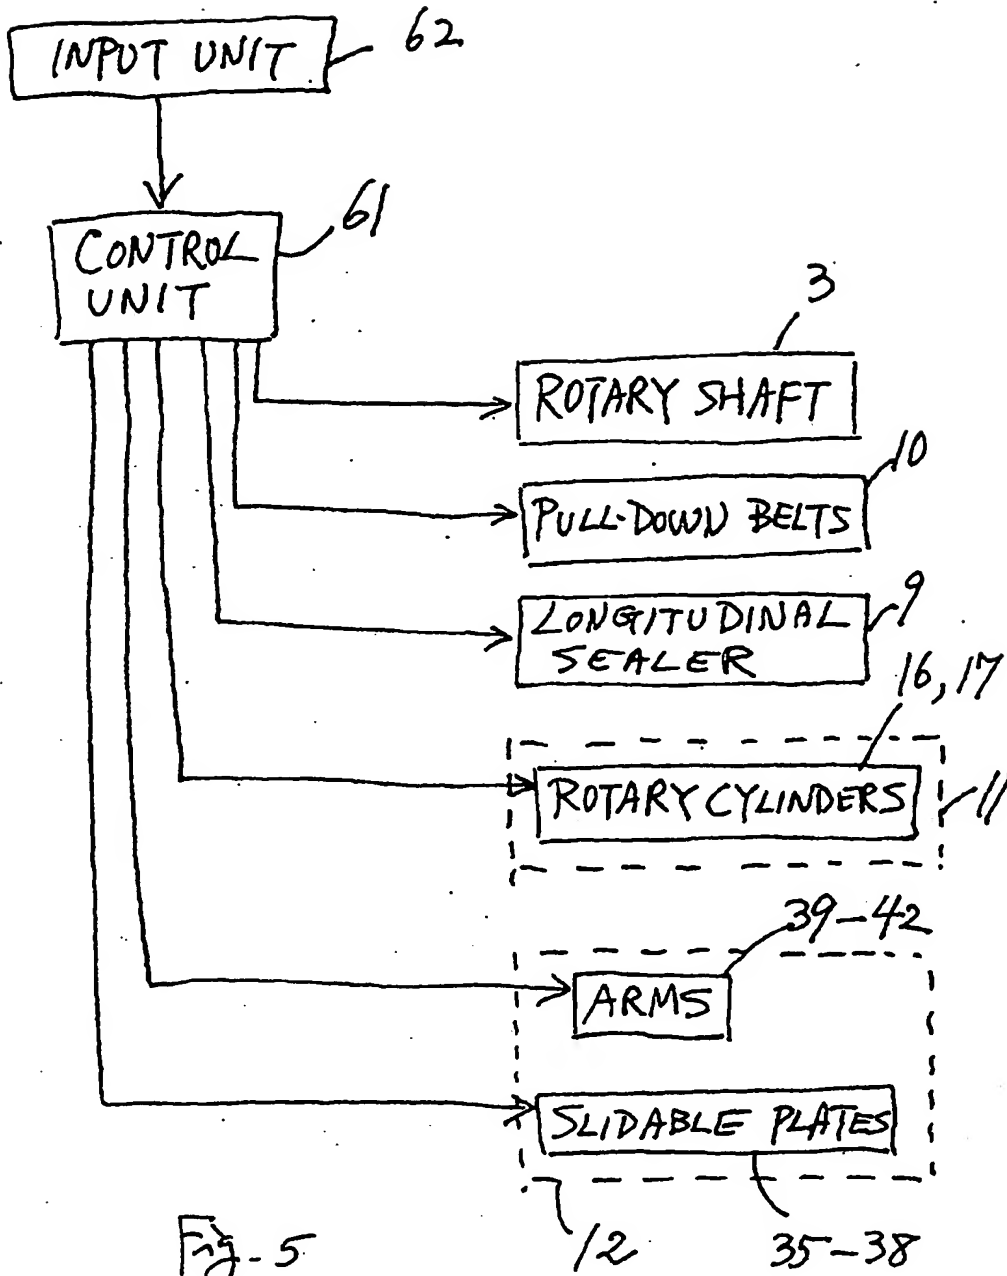 INPUT UNIT
62
CONTROL
UNIT
61
3
ROTARY SHAFT
10
PULL-DOWN BELTS
9
LONGITUDINAL
SEALER
16, 17
ROTARY CYLINDERS
11
39-42
ARMS
SLIDABLE PLATES
Fig-5
12
35-38